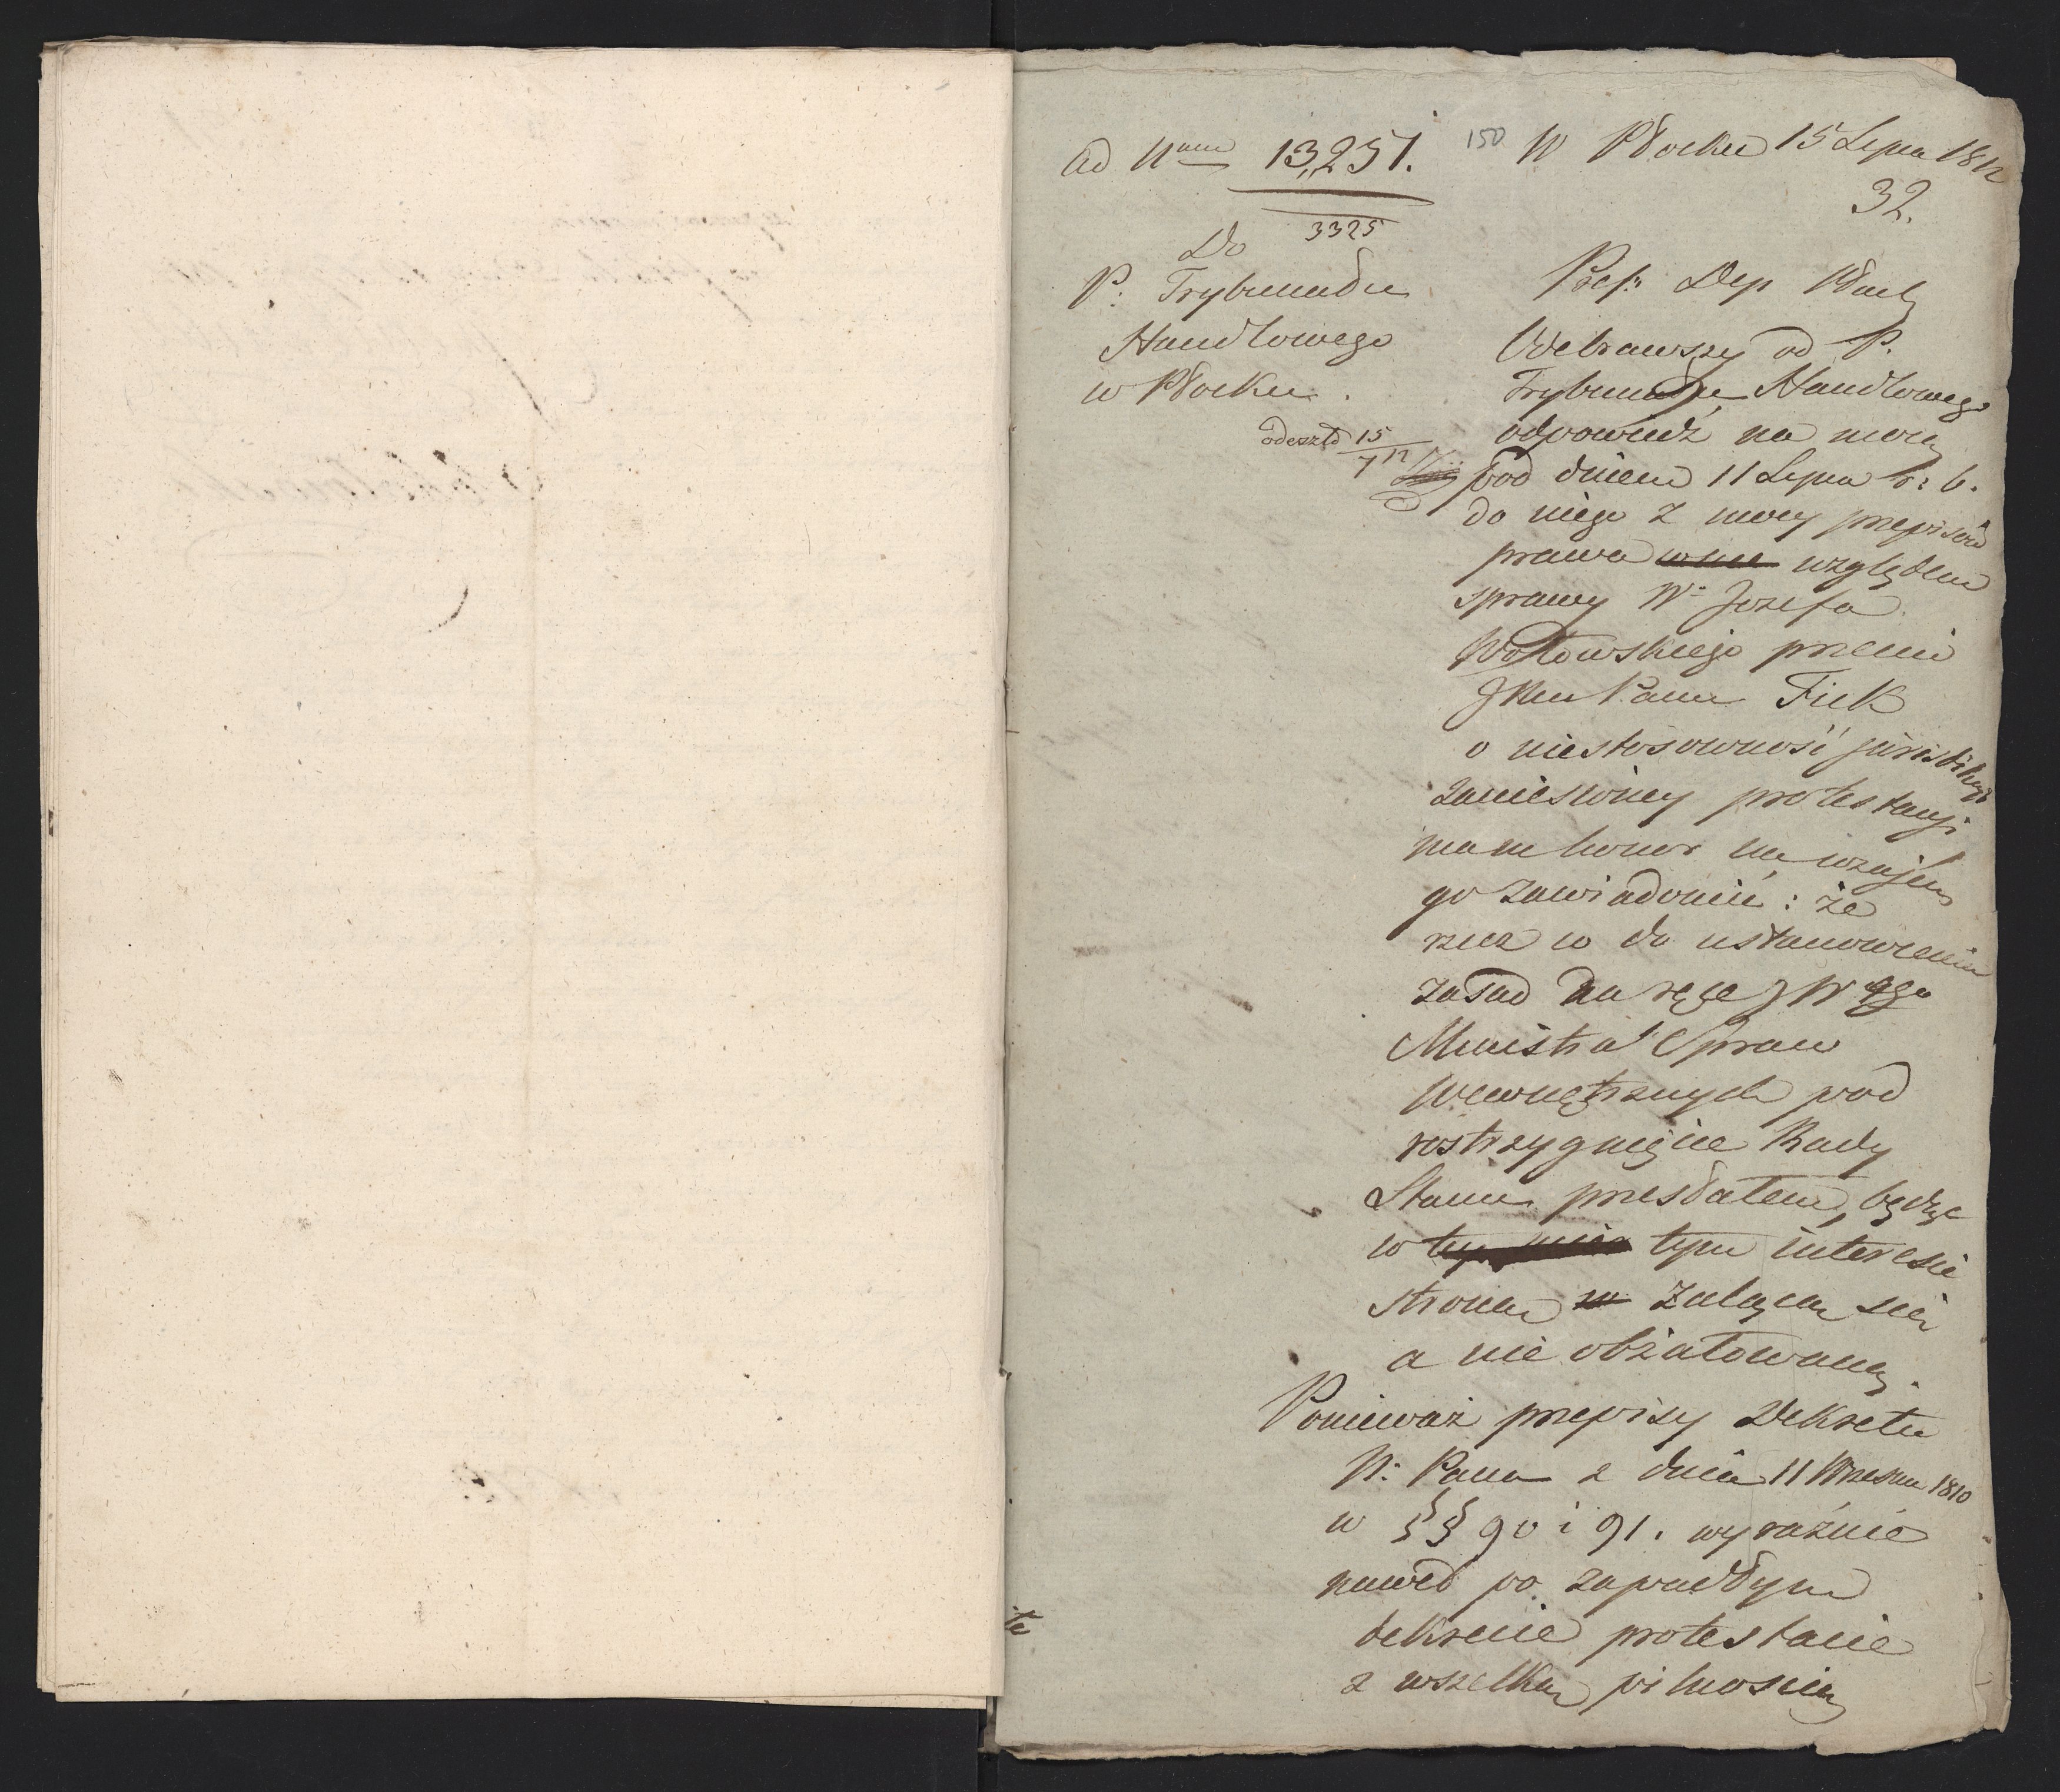 ad Num 13,251.
150
W Płocku 15 Lipca 1812
32.
3325
Do
P. Trybunału
Handlowego
w Płocku.
odeszło 15/7 12
Pref: Dep Płocki
Odebrawszy od P.
Trybunału Handlowego
odpowiedź na moią
pod dniem 11 Lipca r: b.
do niego z mocy przepisów
prawa względem
sprawy W: Jozefa
Wołłowskiego przeciw
Panu Fick
o niestosowność jurisdikcyi
zaniesioney protestacyi
mam honor na wzajem
go zawiadomić: że
rzecz w do ustanowienia
zasad na ręce JW
Ministra Spraw
Wewnętrznych pod
rostrzygnięcie Rady
Stanu przesłałem, będąc
w tym interesie
stroną żalącą się
a nie obżałowaną.
Ponieważ przepisy Dekretu
N: Pana z dnia 11 Wrzesnia 1810
w §§ 90 i 91. wyraźnie
nawed po zapadłym
dekrecie protestacie
z wszelką pilnoscią
te